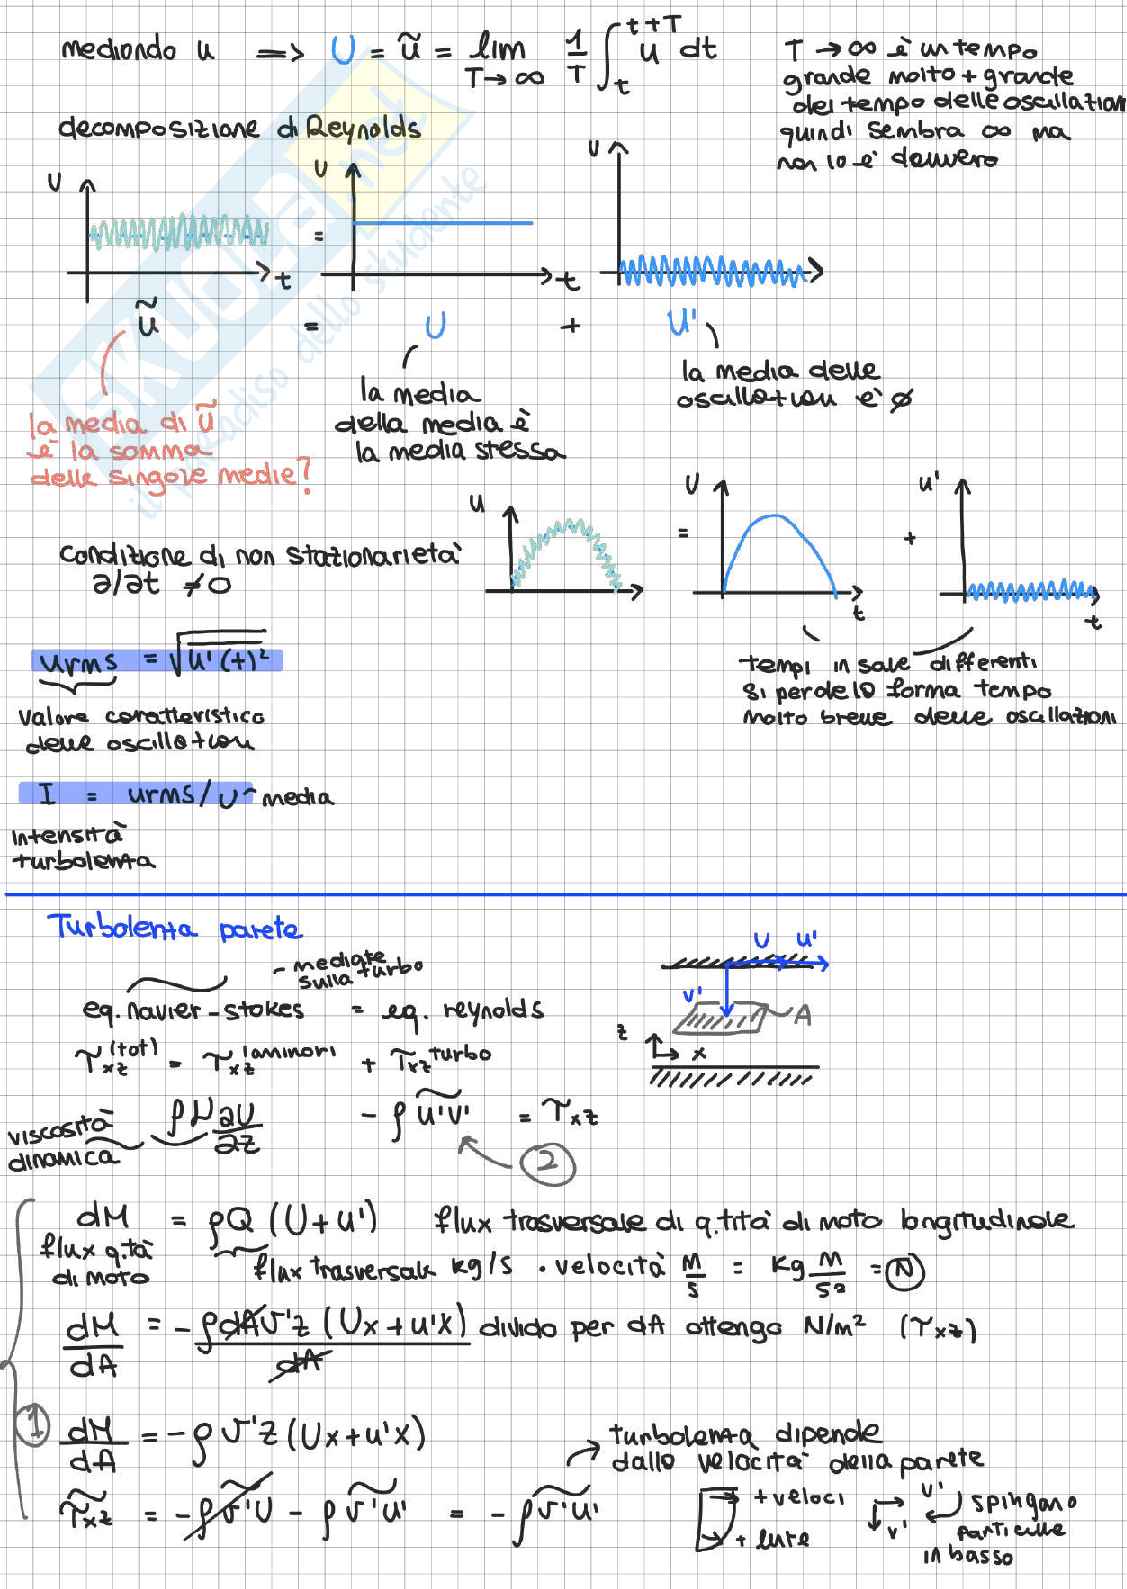 mediando u => U = ũ = lim T→∞ 1/T ∫ t t+T u dt
T → ∞ è un tempo
grande molto + grande
del tempo delle oscillazioni
quindi sembra ∞ ma
non lo è davvero
decomposizione di Reynolds
U
t
=
U
t
U
ũ = U + U'
la media di ũ
è la somma
delle singole medie?
la media
della media è
la media stessa
la media delle
oscillazioni è ø
condizione di non stazionarietà
∂/∂t ≠ 0
u
=
U
t
+
u'
t
tempi in scale differenti
si perde la forma tempo
molto breve delle oscillazioni
urms = √u'(t)²
valore caratteristico
delle oscillazioni
I = urms/U media
intensità
turbolenta
Turbolenza parete
- mediate
sulla turbo
eq. navier-stokes = eq. reynolds
τxz(tot) = τxz laminari + τxz turbo
viscosità
dinamica
ρμ ∂U/∂z - ρ u'v' = τxz
2
U u'
v'
A
z
x
dM = ρQ (U+u') flux trasversale di q.tità di moto longitudinale
flux q.tà
di moto
flux trasversale kg/s · velocità m/s = kg m/s² = N
dM/dA = - ρdAv'z (Ux+u'x)/dA divido per dA ottengo N/m² (τxz)
1
dM/dA = -ρ v'z (Ux+u'x)
turbolenza dipende
dalla velocità della parete
τxz = -ρv'U - ρ v'u' = -ρv'u'
+ veloci
+ lente
v'
v'
spingono
particelle
in basso
SKUOLA.net
il paradiso dello studente